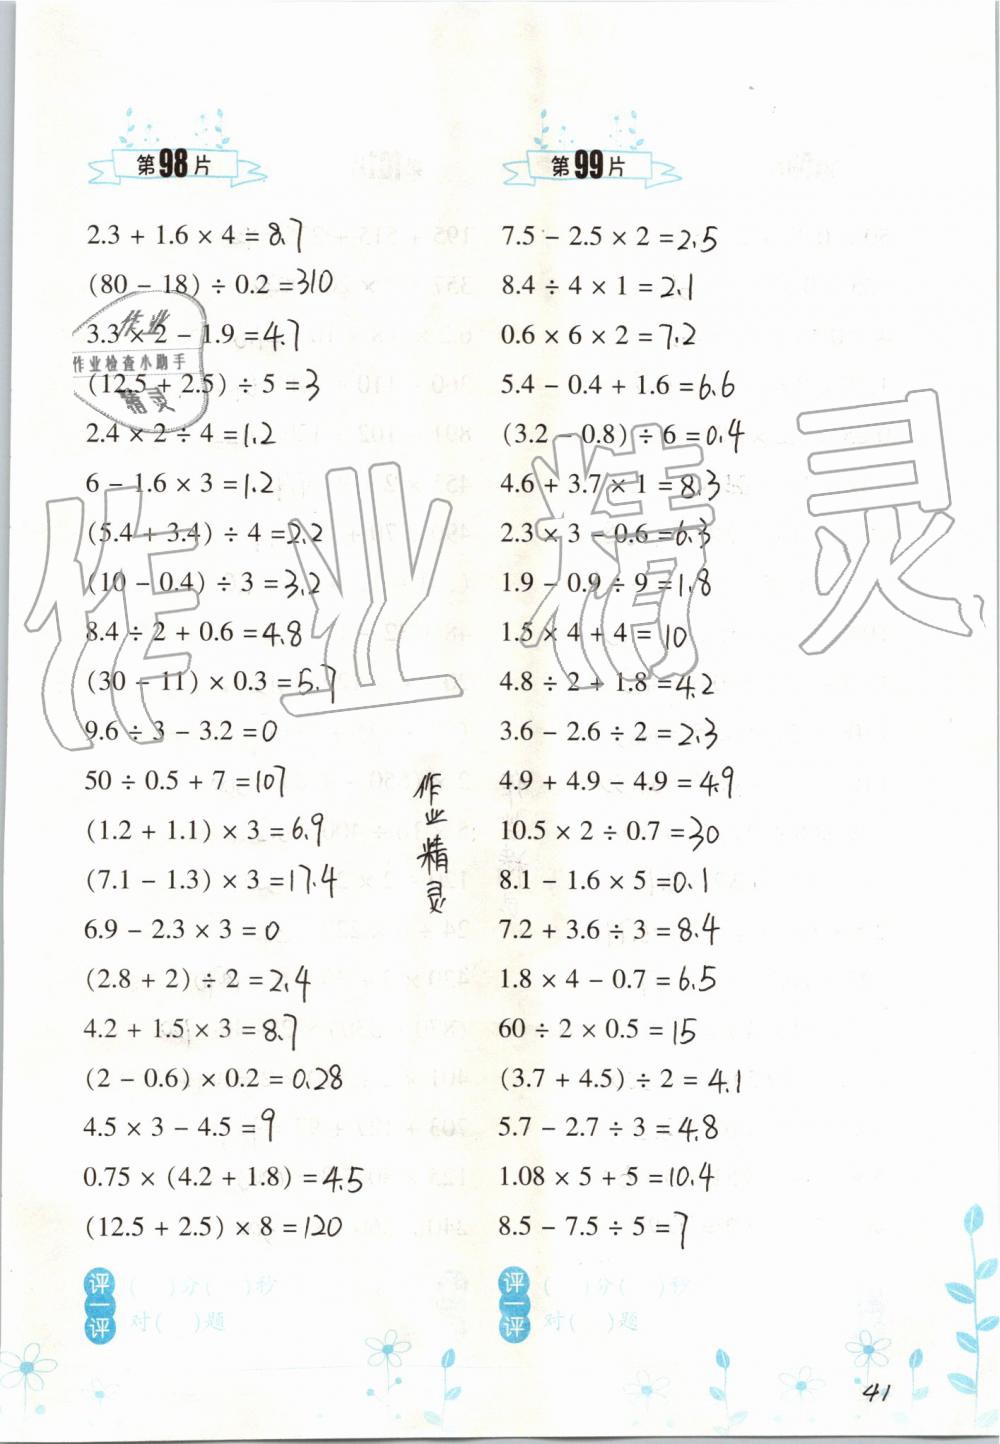 第98片
2.3 + 1.6 × 4 = 8.7
(80 − 18) ÷ 0.2 = 310
3.3 × 2 − 1.9 = 4.7
(12.5 + 2.5) ÷ 5 = 3
2.4 × 2 ÷ 4 = 1.2
6 − 1.6 × 3 = 1.2
(5.4 + 3.4) ÷ 4 = 2.2
(10 − 0.4) ÷ 3 = 3.2
8.4 ÷ 2 + 0.6 = 4.8
(30 − 11) × 0.3 = 5.7
9.6 ÷ 3 − 3.2 = 0
50 ÷ 0.5 + 7 = 107
(1.2 + 1.1) × 3 = 6.9
(7.1 − 1.3) × 3 = 17.4
6.9 − 2.3 × 3 = 0
(2.8 + 2) ÷ 2 = 2.4
4.2 + 1.5 × 3 = 8.7
(2 − 0.6) × 0.2 = 0.28
4.5 × 3 − 4.5 = 9
0.75 × (4.2 + 1.8) = 4.5
(12.5 + 2.5) × 8 = 120
评一评
( )分( )秒
对( )题
第99片
7.5 − 2.5 × 2 = 2.5
8.4 ÷ 4 × 1 = 2.1
0.6 × 6 × 2 = 7.2
5.4 − 0.4 + 1.6 = 6.6
(3.2 − 0.8) ÷ 6 = 0.4
4.6 + 3.7 × 1 = 8.3
2.3 × 3 − 0.6 = 6.3
1.9 − 0.9 ÷ 9 = 1.8
1.5 × 4 + 4 = 10
4.8 ÷ 2 + 1.8 = 4.2
3.6 − 2.6 ÷ 2 = 2.3
4.9 + 4.9 − 4.9 = 4.9
10.5 × 2 ÷ 0.7 = 30
8.1 − 1.6 × 5 = 0.1
7.2 + 3.6 ÷ 3 = 8.4
1.8 × 4 − 0.7 = 6.5
60 ÷ 2 × 0.5 = 15
(3.7 + 4.5) ÷ 2 = 4.1
5.7 − 2.7 ÷ 3 = 4.8
1.08 × 5 + 5 = 10.4
8.5 − 7.5 ÷ 5 = 7
评一评
( )分( )秒
对( )题
作业
作业检查小助手
精灵
作业精灵
作业精灵
41